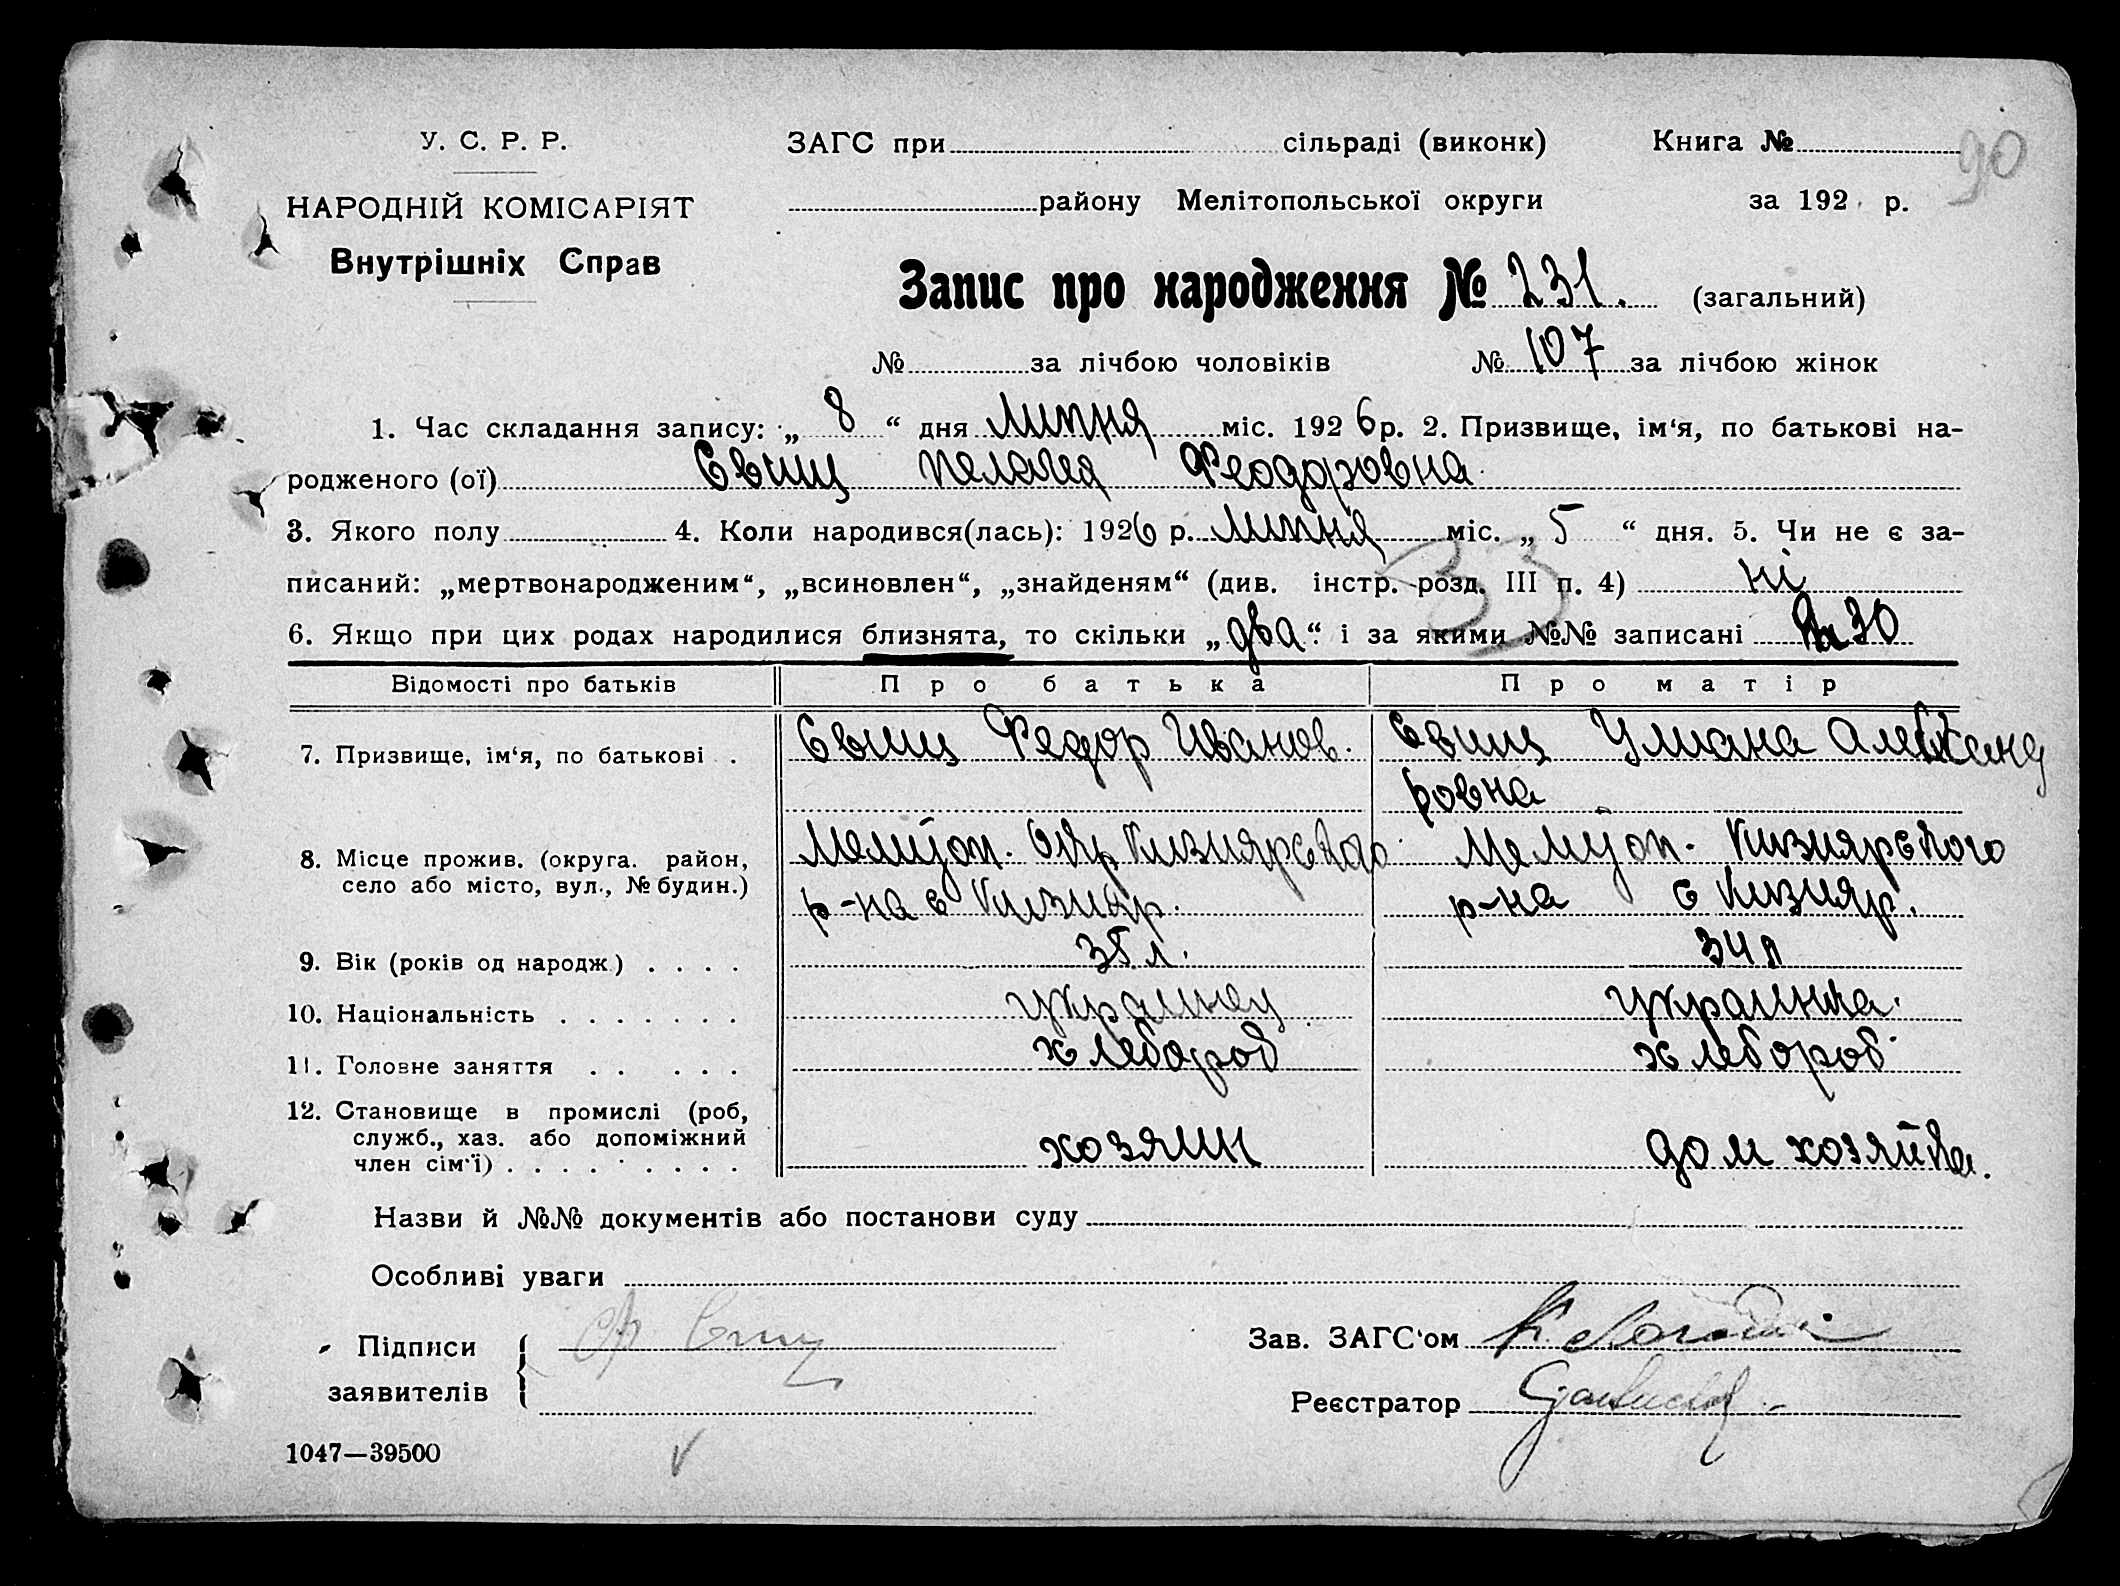 90
У. С. Р. Р.
ЗАГС при сільраді (виконк) Книга №
НАРОДНІЙ КОМІСАРІЯТ
району Мелітопольської округи за 192 р.
Внутрішніх Справ
Запис про народження № 231. (загальний)
№ за лічбою чоловіків № 107 за лічбою жінок
1. Час складання запису: „ 8 “ дня липня міс. 1926 р. 2. Призвище, ім‘я, по батькові на-
родженого (ої) Євщ Пелагея Феодоровна
3. Якого полу 4. Коли народився(лась): 1926 р. липня міс. „ 5 “ дня. 5. Чи не є за-
писаний: „мертвонародженим“, „всиновлен“, „знайденям“ (див. інстр. розд. III п. 4) ні
33
6. Якщо при цих родах народилися близнята, то скільки „два“ і за якими №№ записані 30
Відомості про батьків Про батька Про матір
7. Призвище, ім‘я, по батькові . Федор Иванов. Улиана Александ
ровна
8. Місце прожив. (округа. район, Мелітоп. окр Кизиярского Мелітоп. Кизиярского
село або місто, вул., № будин.) р-на с Кизияр. р-на с Кизияр.
9. Вік (років од народж.) . . . . 35 л. 34 л
10. Національність . . . . . . . украинец украинка.
11. Головне заняття . . . . . хлебороб хлебороб
12. Становище в промислі (роб,
служб., хаз. або допоміжний
член сім‘ї) . . . . . . . . . хозяин дом хозяйка.
Назви й №№ документів або постанови суду
Особливі уваги
Підписи
Зав. ЗАГС‘ом
заявителів
Реєстратор
1047—39500